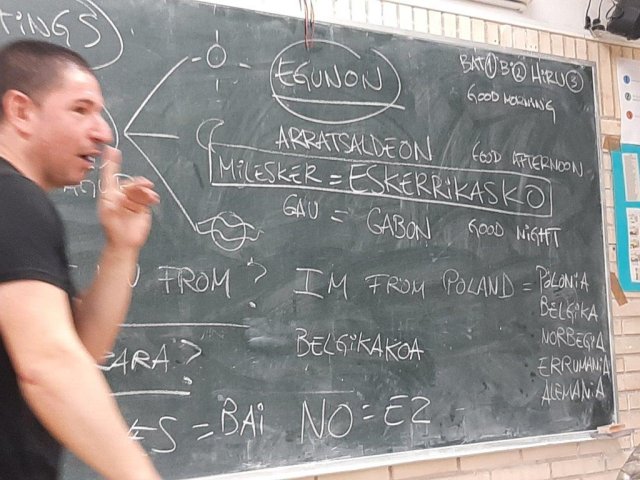 TINGS
EGUNON
BAT 1 Bi 2 HiRU 3
GOOD MORNING
ARRATSALDEON GOOD AFTERNOON
MiLESKER = ESKERRiKASKO
GAU = GABON GOOD NiGHT
FROM? I'M FROM POLAND = POLONiA
BELGiKA
NORBEGiA
ERRUMANiA
ALEMANiA
ZARA? BELGiKAKOA
ES = BAi NO = EZ